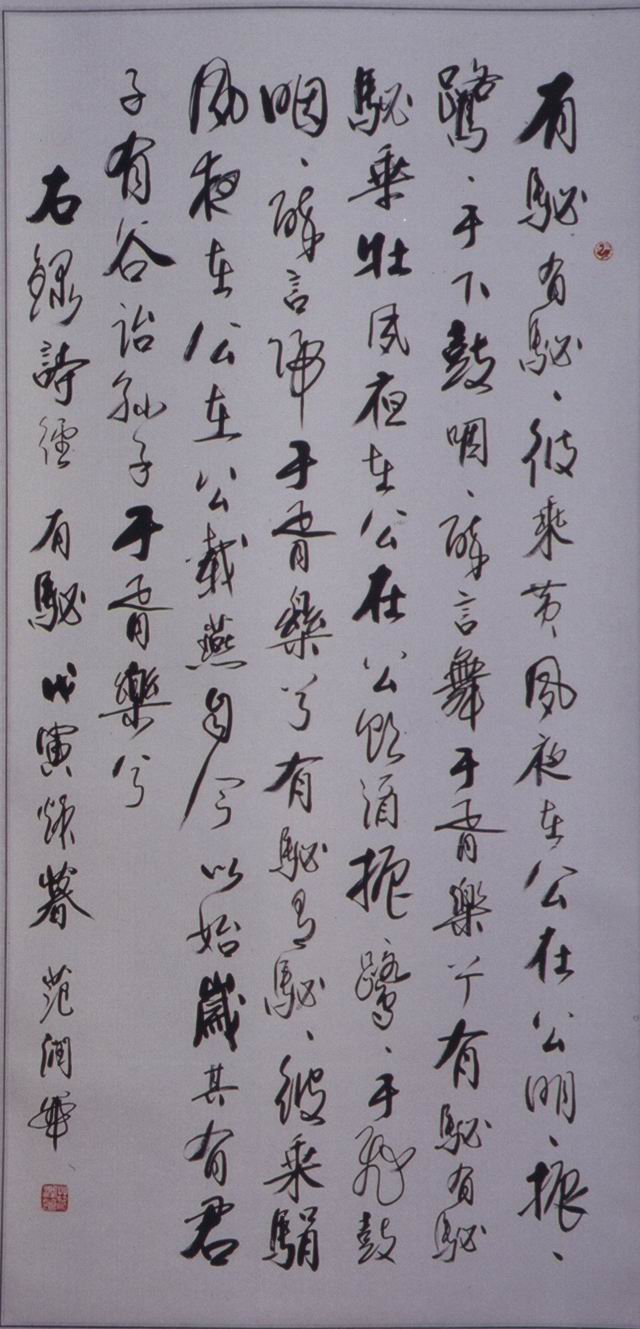 有駜有駜、彼乘黄夙夜在公在公明、振、
鷺、于下鼓咽、醉言舞于胥樂兮有駜有駜
駜乘牡夙夜在公在公飲酒振、鷺、于飛鼓
咽、醉言歸于胥樂兮有駜有駜、彼乘駽
夙夜在公在公載燕自今以始歲其有君
子有谷詒孫子于胥樂兮
右錄詩經 有駜 戊寅暮 范潤華